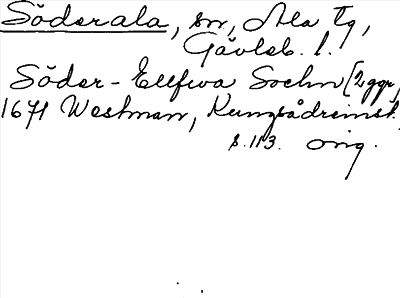 Söderala, sn, Ala tg,
Gävleb. l.
Söder-Ellfwa Sochn [2 ggr,
1671 Westman, Kungsådreinst.
s. 113. orig.